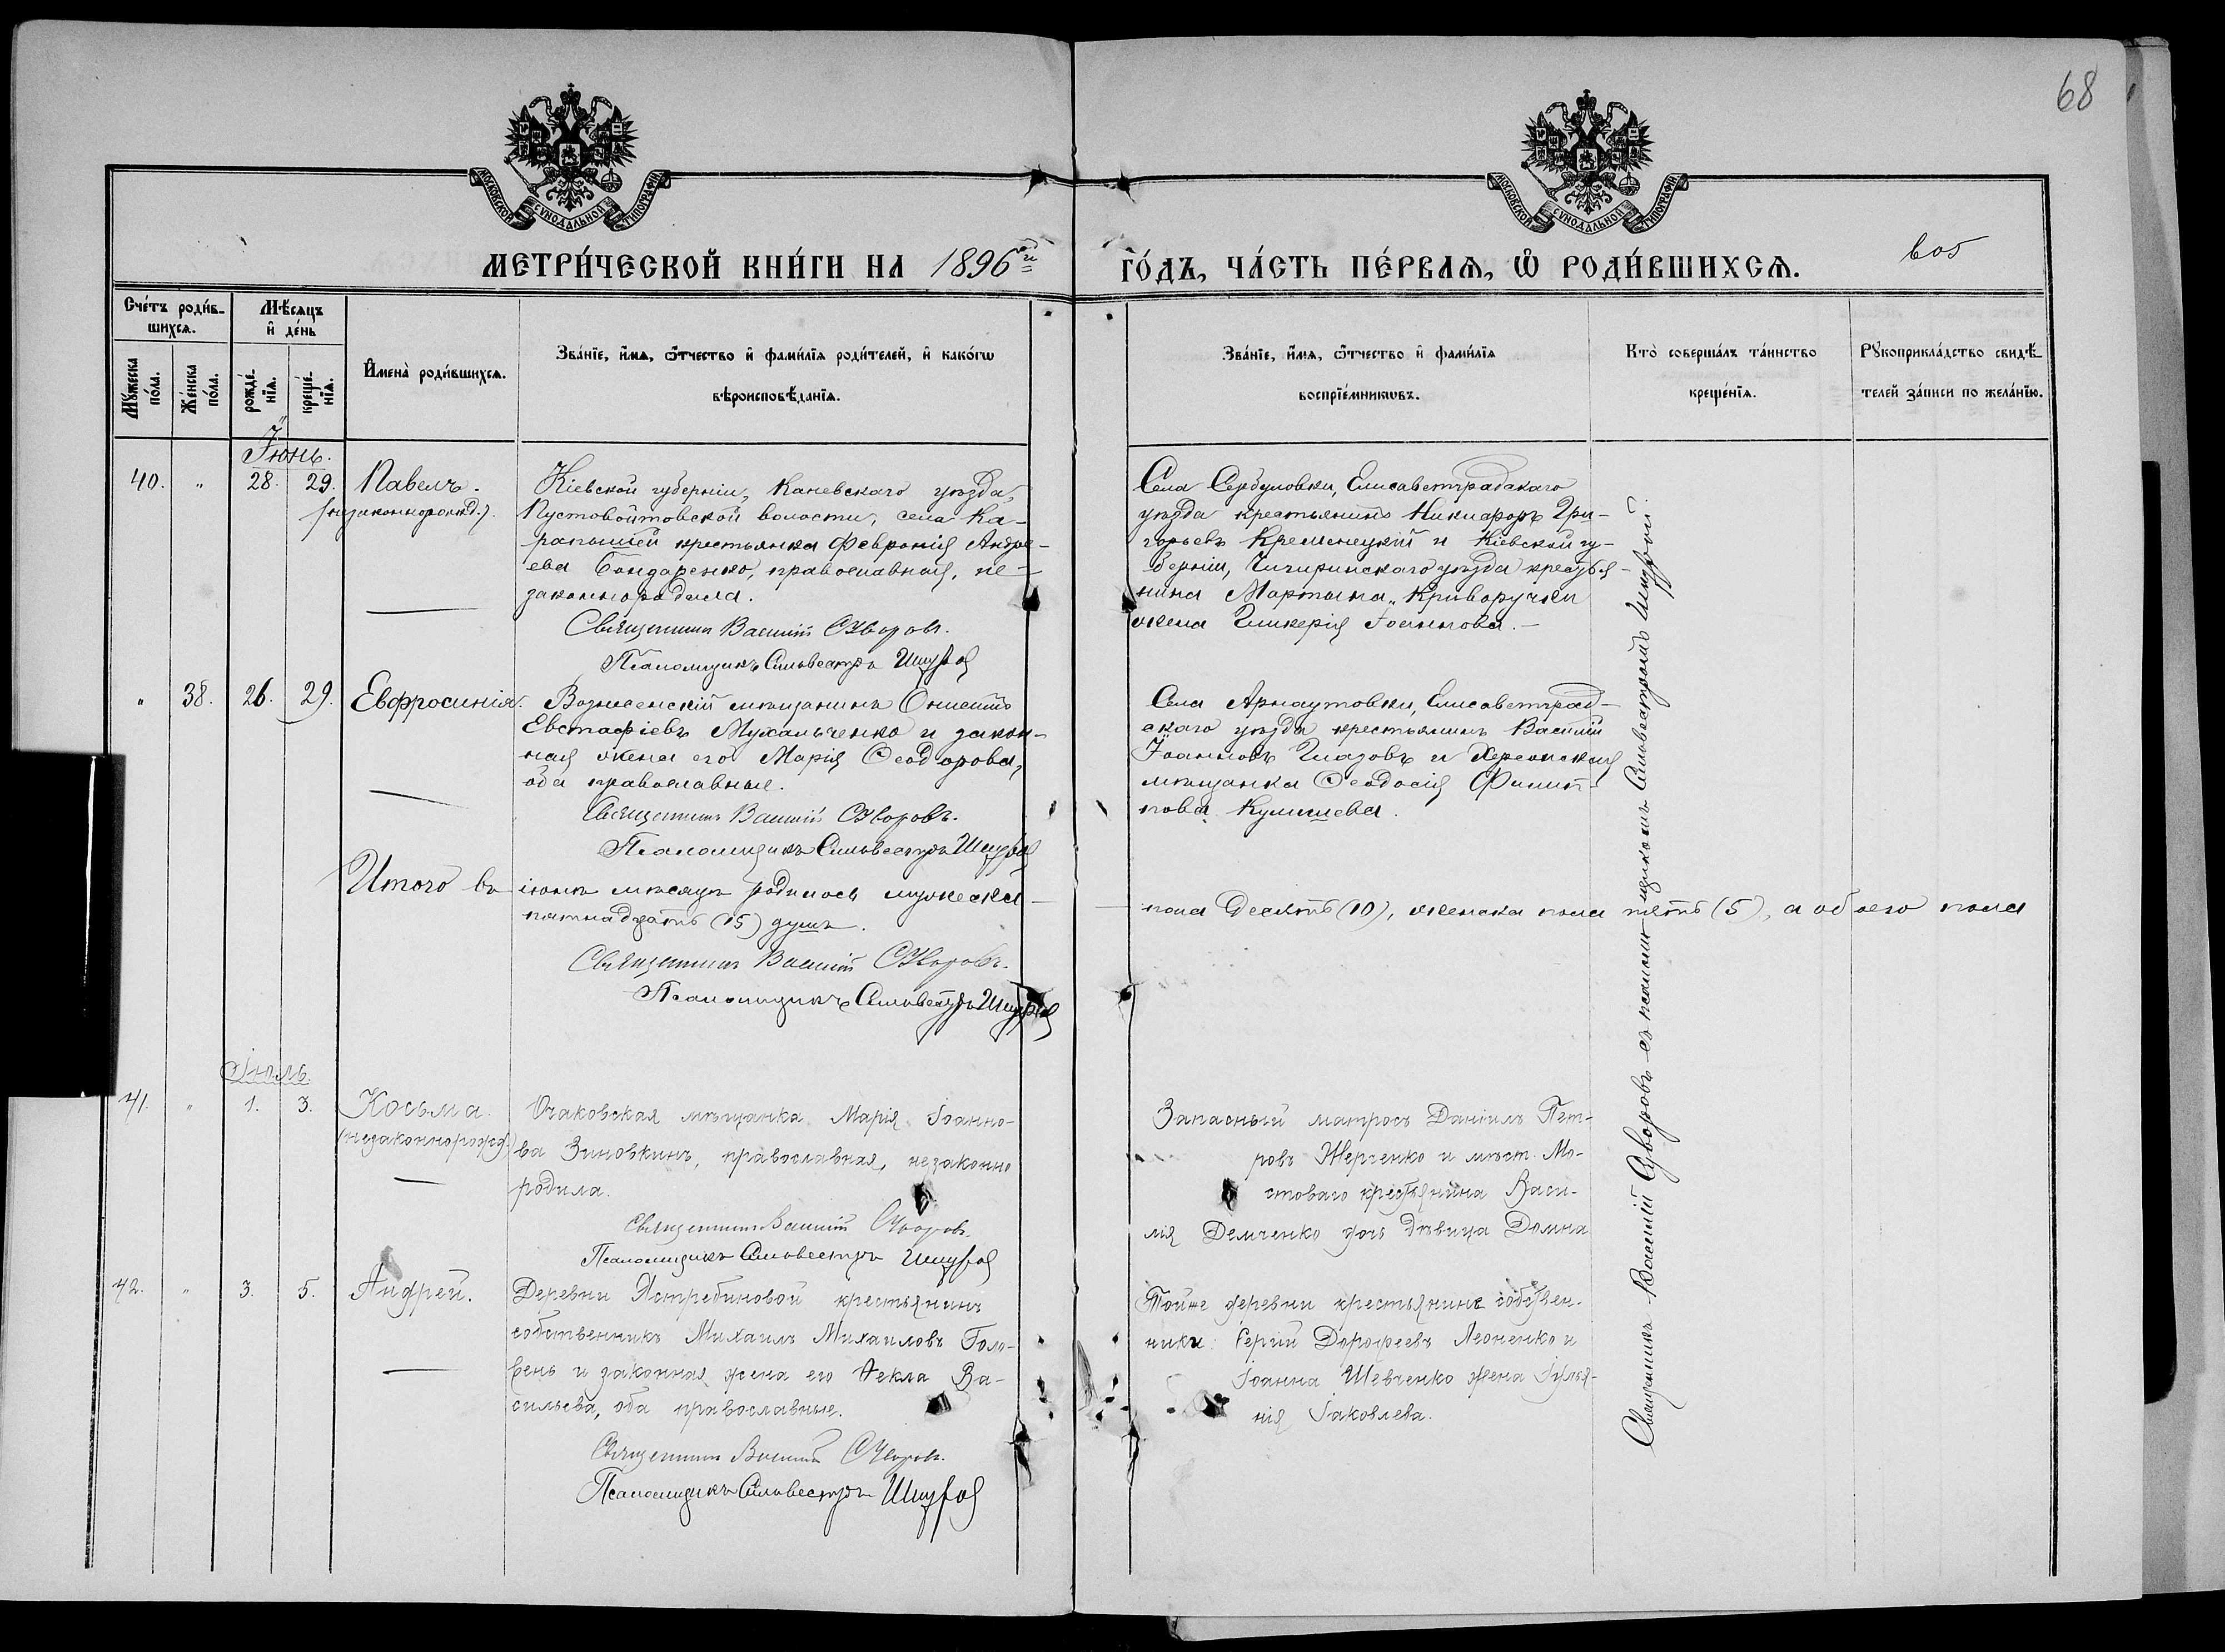 68
МОСКОВСКОЙ СѴНОДАЛЬНОЙ ТИПОГРАФІИ
МОСКОВСКОЙ СѴНОДАЛЬНОЙ ТИПОГРАФІИ
МЕТРИ́ЧЕСКОЙ КНИ́ГИ НА 1896 ГО́ДЪ, ЧА́СТЬ ПЕ́РВАѦ, Ѡ҆ РОДИ́ВШИХСѦ.
Сче́тъ роди́в-
шихсѧ.
Мѣ́сѧцъ
и҆ де́нь
Мꙋ́жеска
по́ла.
Же́нска
по́ла.
рожде́-
нїѧ.
креще́-
нїѧ.
И҆мена̀ роди́вшихсѧ.
Зва́нїе, и҆́мѧ, ѻ҆́тчество и҆ фамѝлїѧ роди́телей, и҆ како́гѡ
вѣроисповѣ́данїѧ.
Зва́нїе, и҆́мѧ, ѻ҆́тчество и҆ фамѝлїѧ
воспрїе́мникѡвъ.
Кто̀ соверша́лъ та́инство
креще́нїѧ.
Рꙋкоприкла́дство свидѣ́-
телей за́писи по жела́нїю.
Іюнь.
40. " 28. 29. Павелъ.
(незаконнорожд.).
Кіевской губерніи, Каневскаго уѣзда,
Пустовойтовской волости, села Ка-
рапышей крестьянка Февронія Андре-
ева Бондаренко, православная, не-
законно родила.
Священникъ Василій Суворовъ.
Псаломщикъ Сильвестръ
Села Сербуловки, Елисаветградскаго
уѣзда крестьянинъ Никифоръ Гри-
горьевъ Кременецкій и Кіевской гу-
берніи, Чигиринскаго уѣзда крестья-
нина Мартына Криворучки
жена Гликерія Іоаннова.
" 38. 26. 29. Евфросинія.
Вознесенскій мѣщанинъ Онисимъ
Евстафіевъ Мухальченко и закон-
ная жена его Марія Ѳеодорова,
оба православные.
Священникъ Василій Суворовъ.
Псаломщикъ Сильвестръ
Села Арнаутовки, Елисаветград-
скаго уѣзда крестьянинъ Василій
Іоанновъ Глазовъ и Херсонская
мѣщанка Ѳеодосія Филип-
пова
Итого въ іюнѣ мѣсяцѣ родилось мужеска пола десять (10), женска пола пять (5), а обоего пола
пятнадцать (15) душъ.
Священникъ Василій Суворовъ.
Псаломщикъ Сильвестръ
Іюль.
41. " 1. 3. Косьма.
(незаконнорожд.)
Очаковская мѣщанка Марія Іоанно-
ва Зиновкинъ, православная, незаконно
родила.
Священникъ Василій Суворовъ.
Псаломщикъ Сильвестръ
Запасный матросъ Даніилъ Пет-
ровъ Жерченко и мѣст. Мо-
стоваго крестьянина Васи-
лія Демченко дочь дѣвица Домна
42. " 3. 5. Андрей.
Деревни Ястребиновой крестьянинъ
собственникъ Михаилъ Михаиловъ Голо-
вень и законная жена его Ѳекла Ва-
сильева, оба православные.
Священникъ Василій Суворовъ.
Псаломщикъ Сильвестръ
Тойже деревни крестьяне собствен-
ники: Сергій Дорофеевъ Леоненко и
Іоанна Шевченко жена Іулья-
нія Іаковлева.
Священникъ Василій Суворовъ съ псаломщикомъ Сильвестромъ